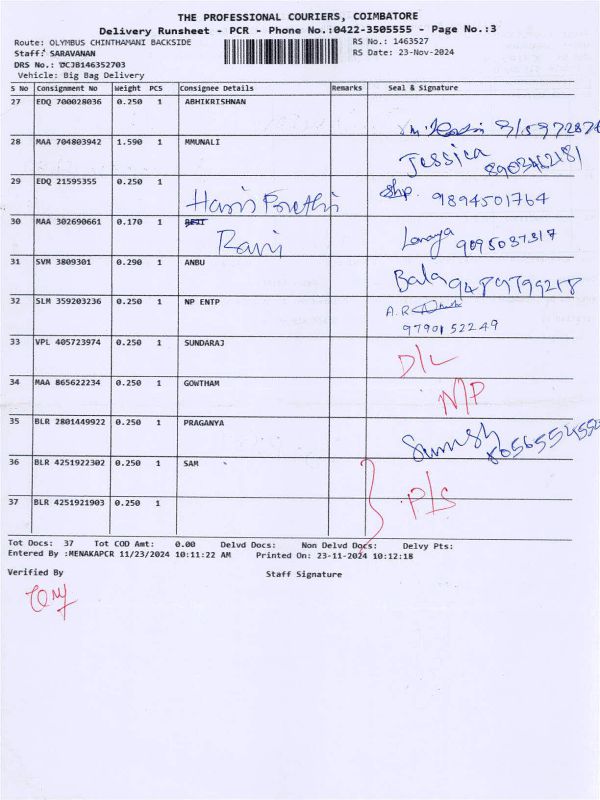 THE PROFESSIONAL COURIERS, COIMBATORE
Delivery Runsheet - PCR - Phone No.:0422-3505555 - Page No.:3
Route: OLYMBUS CHINTHAMANI BACKSIDE RS No.: 1463527
Staff: SARAVANAN RS Date: 23-Nov-2024
DRS No.: DCJB146352703
Vehicle: Big Bag Delivery
S No Consignment No Weight PCS Consignee Details Remarks Seal & Signature
27 EDQ 700028036 0.250 1 ABHIKRISHNAN
28 MAA 704803942 1.590 1 MMUNALI Jessica 8903462181
29 EDQ 21595355 0.250 1 shp. 9894501764
30 MAA 302690661 0.170 1 Ravi 9095037317
31 SVM 3809301 0.290 1 ANBU Bala 9489799218
32 SLM 359203236 0.250 1 NP ENTP A.R
9790152249
33 VPL 405723974 0.250 1 SUNDARAJ D/L
34 MAA 865622234 0.250 1 GOWTHAM N/P
35 BLR 2801449922 0.250 1 PRAGANYA
36 BLR 4251922302 0.250 1 SAM P/S
37 BLR 4251921903 0.250 1
Tot Docs: 37 Tot COD Amt: 0.00 Delvd Docs: Non Delvd Docs: Delvy Pts:
Entered By :MENAKAPCR 11/23/2024 10:11:22 AM Printed On: 23-11-2024 10:12:18
Verified By Staff Signature